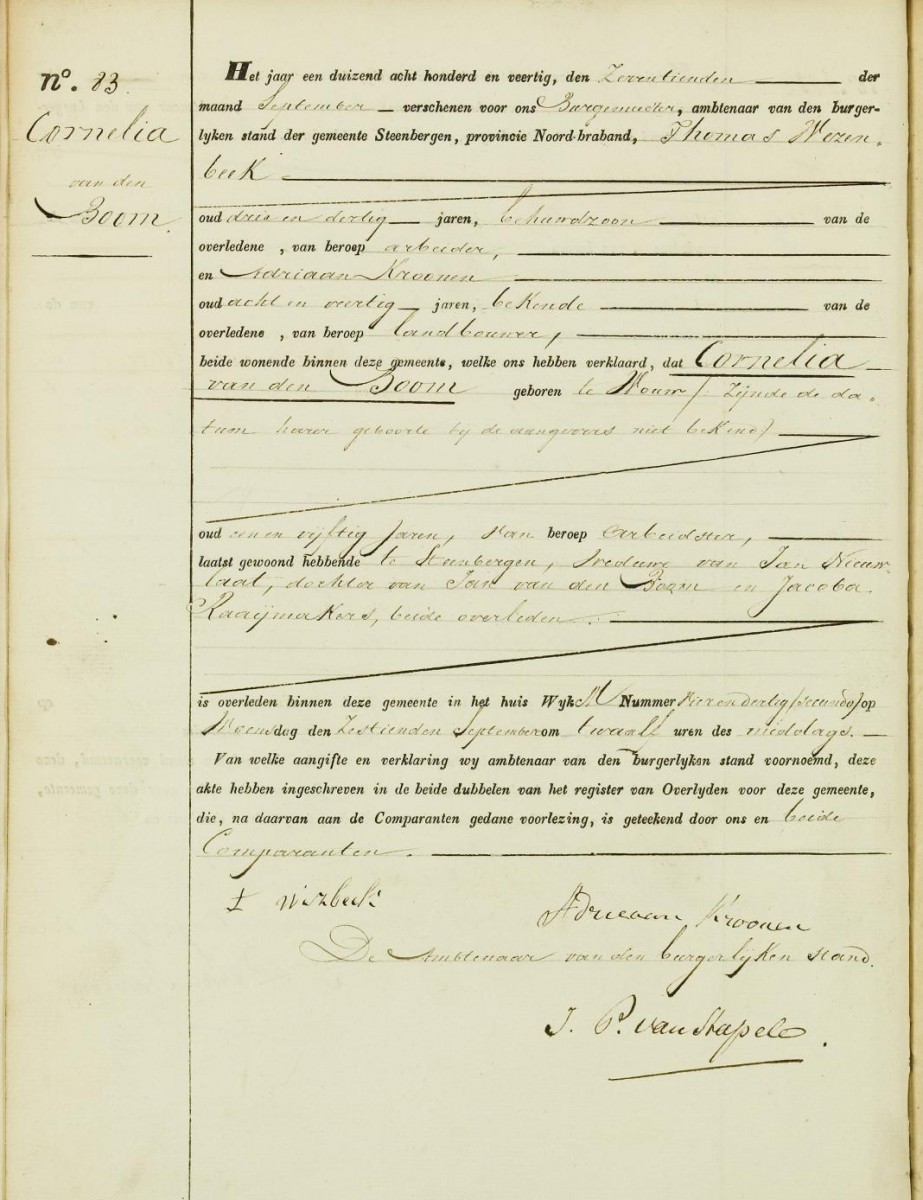 No. 83.
Cornelia
van den
Boom.
Het jaar een duizend acht honderd en veertig, den Zeventienden der
maand September verschenen voor ons Burgemeester, ambtenaar van den burger-
lyken stand der gemeente Steenbergen, provincie Noord-braband, Thomas Wezen-
beek
oud drie en dertig jaren, behuwdzoon van de
overledene , van beroep arbeider,
en Adriaan Kroonen
oud acht en veertig jaren, bekende van de
overledene , van beroep landbouwer,
beide wonende binnen deze gemeente, welke ons hebben verklaard, dat Cornelia
van den Boom geboren te Wouw (: Zijnde de da-
tum harer geboorte bij de aangevers niet bekend)
oud een en vijftig jaren, van beroep Arbeidster,
laatst gewoond hebbende te Steenbergen, weduwe van Jan Nieuw-
laat, dochter van Jan van den Boom en Jacoba
Raaijmakers, beide overleden.
is overleden binnen deze gemeente in het huis Wyk M Nummer vier en dertig (secundo) op
Woensdag den Zestienden September om twaalf uren des middags.
Van welke aangifte en verklaring wy ambtenaar van den burgerlyken stand voornoemd, deze
akte hebben ingeschreven in de beide dubbelen van het register van Overlyden voor deze gemeente,
die, na daarvan aan de Comparanten gedane voorlezing, is geteekend door ons en beide
Comparanten.
Adrieaan Kroonen
De Ambtenaar van den burgerlijken stand.
J. P. van Stapele